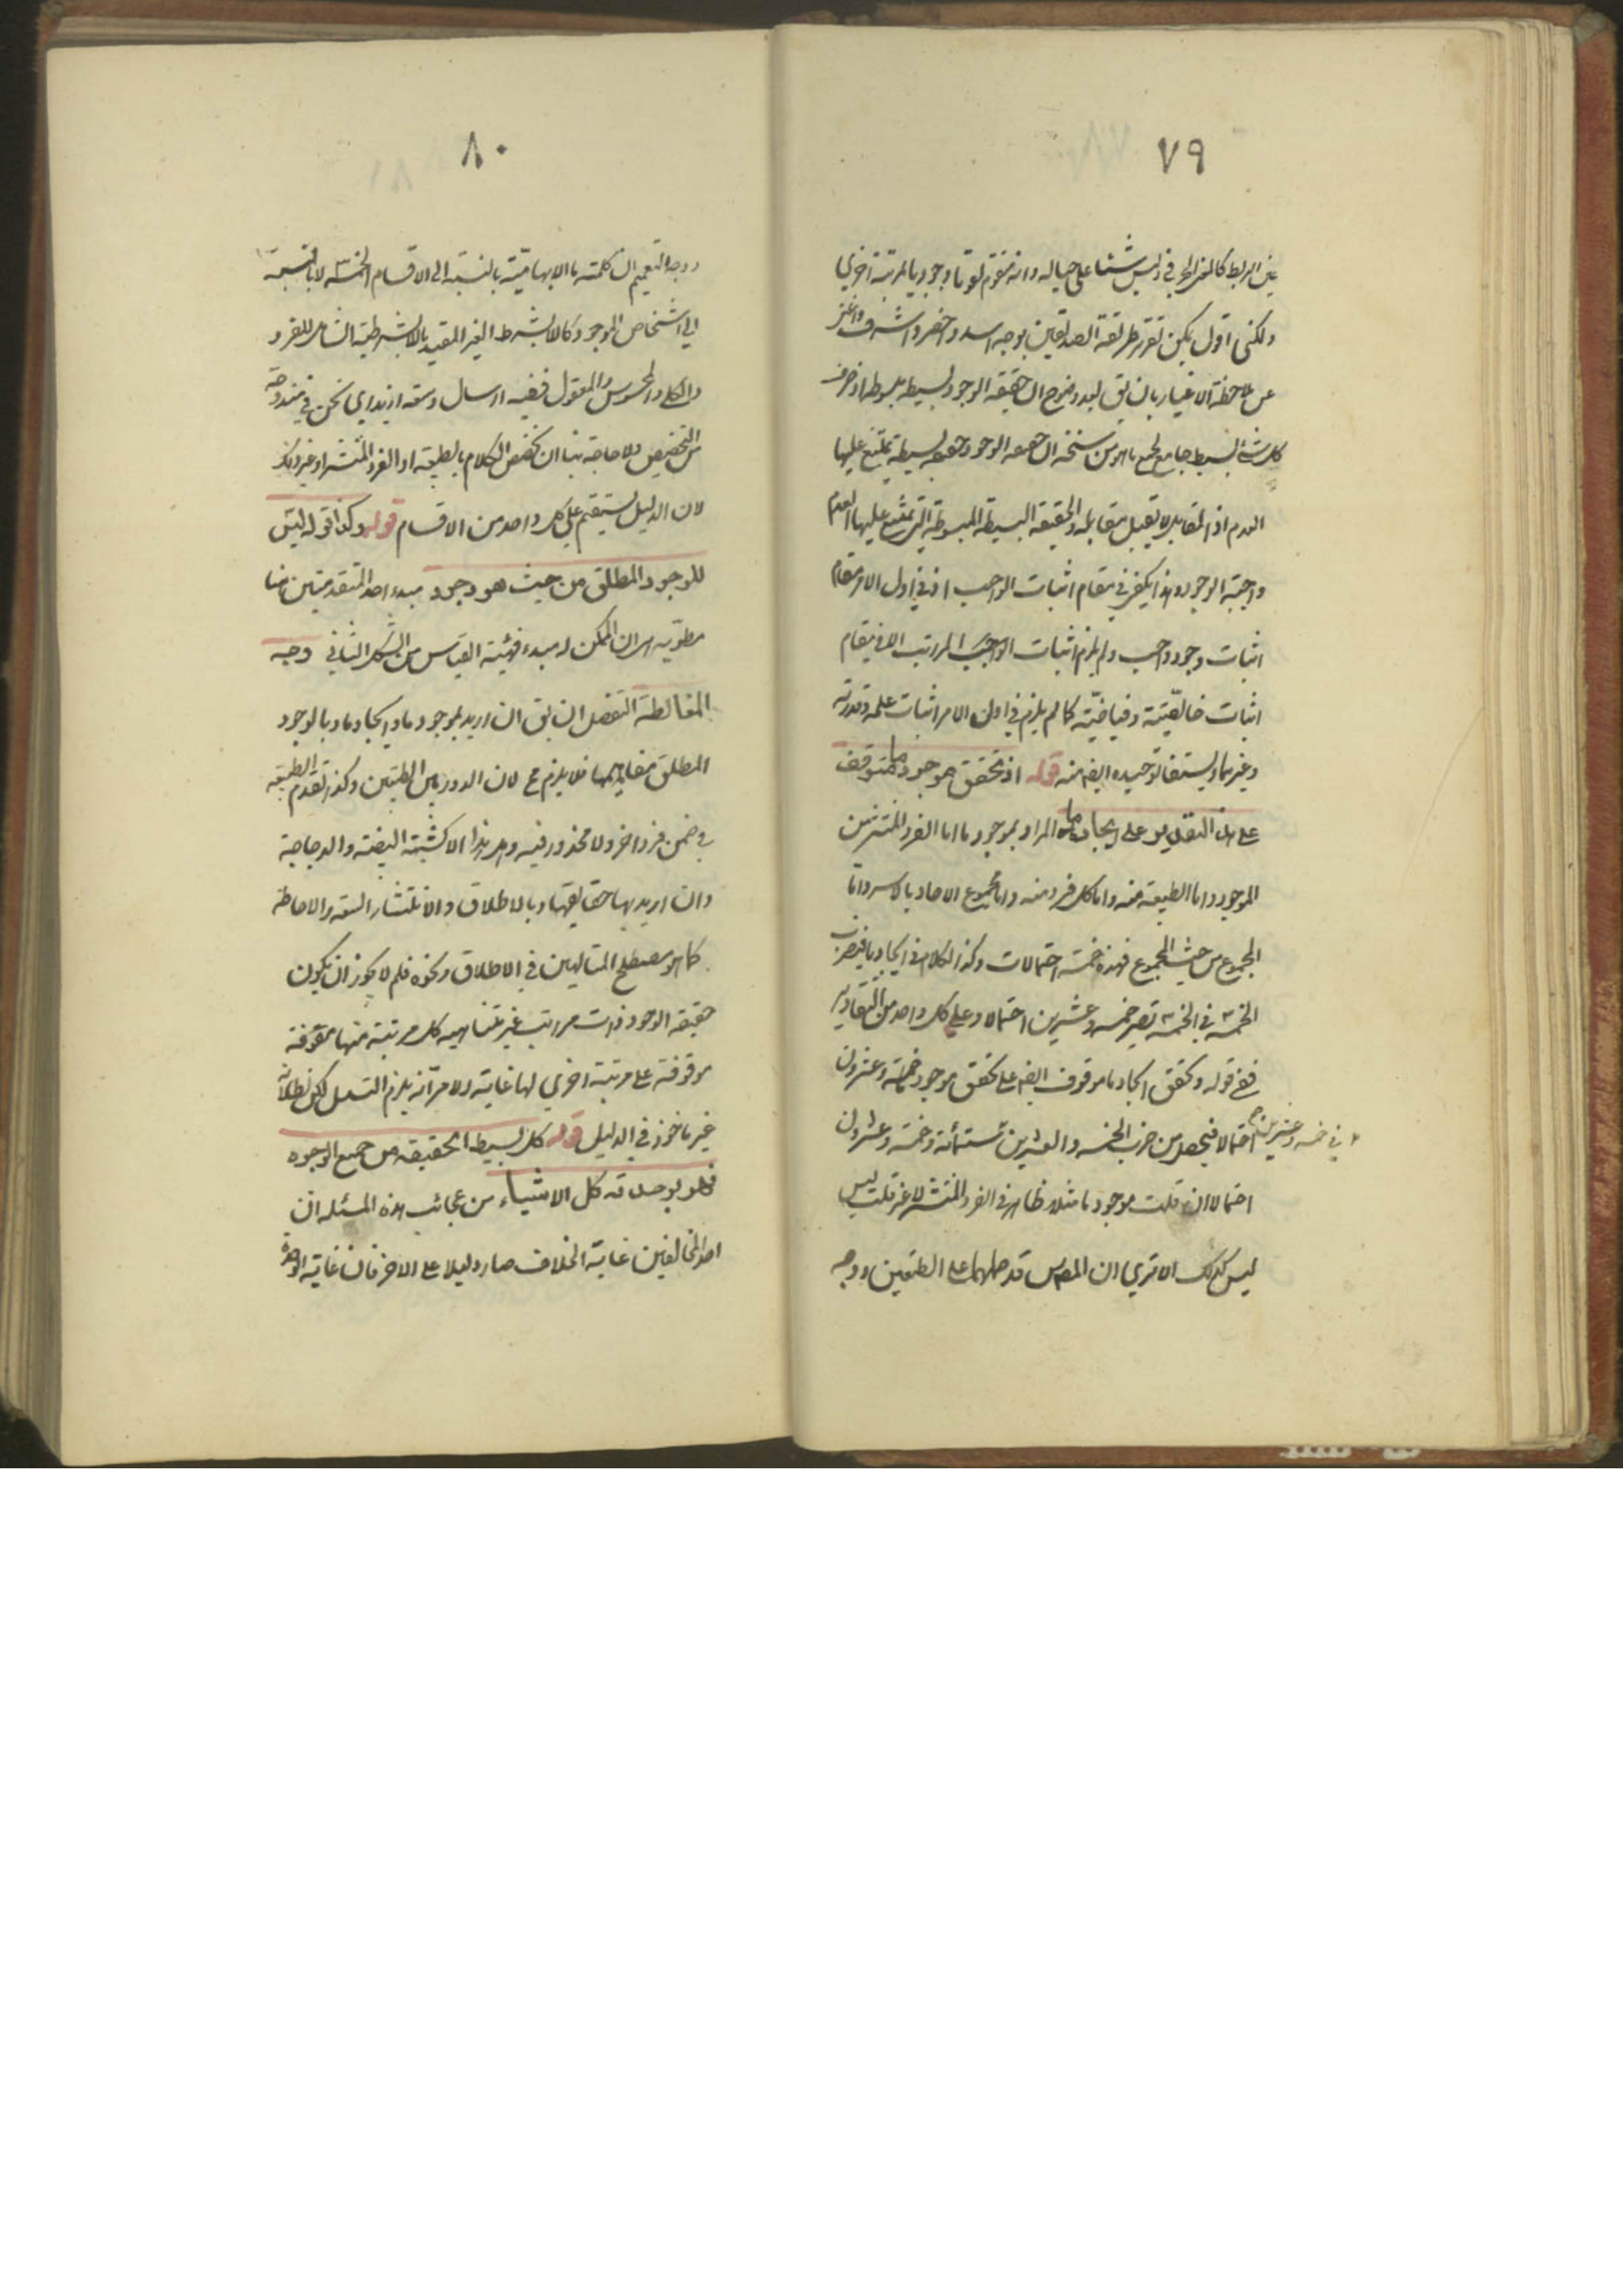 ٧٩
عين الربط كالمعنى الحرفي وليس شيئا على حياله وانه متقوم تقوما وجوديا بالمرتبة اخرى
ولكني اقول يمكن تقرير طريقة الصديقين بوجه اسد واخصر واشرف واغنى
عن ملاحظة الاغيار بان يق بعد وضوح ان حقيقة الوجود بسيطة مبسوطة
كل شيء بسيط جامع لجميع ما هو من سنخه ان حقيقة الوجود حقيقة بسيطة يمتنع عليها
العدم اذ المقابل لا يقبل مقابله والحقيقة البسيطة المبسوطة التي تمتنع عليها العدم
واجبة الوجود وهذا يكفي في مقام اثبات الواجب اذ في اول الامر مقام
اثبات وجود واجب ولم يلزم اثبات الواجب المراتب الا في مقام
اثبات خالقيته وفياضيته كما لم يلزم في اول الامر اثبات علمه وقدرته
وغيرهما ويستفاد توحيده ايضا منه قوله اذ تحقق موجود ما متوقف
على هذا التقدير على ايجاد ما المراد بموجود ما اما الفرد المنتشر من
الموجود واما الطبيعة منه واما كل فرد منه واما مجموع الاحاد بالاسر واما
المجموع من حيث المجموع فهذه خمسة احتمالات وكذا الكلام في ايجاد ما فبضرب
الخمسة في الخمسة تصير خمسة وعشرين احتمالا وعلى كل واحد من التقادير
ففي قوله وتحقق ايجاد ما موقوف ايضا على تحقق موجود خمسة وعشرون
احتمالا فيحصل من ضرب الخمسة والعشرين ستمائة وخمسة وعشرون
في خمسة وعشرين
احتمالا ان قلت موجود ما مثلا ظاهر في الفرد المنتشر لا غير قلت ليس
ليس كذلك الا ترى ان المص س قد حملهما على الطبيعتين ووجه
٨٠
ووجه التعميم ان كلمة ما الابهامية بالنسبة الى الاقسام الخمسة لا بالنسبة
الى اشخاص الموجود كاللابشرط الغير المقيد باللابشرطية الشامل للفرد
والكلي والمحسوس والمعقول ففيه ارسال وسعة ازيد اي نحن في مندوحة
من التخصيص ولا حاجة بنا ان نخصص الكلام بالطبيعة او الفرد المنتشر او غير ذلك
لان الدليل يستقيم على كل واحد من الاقسام قوله وكذا قوله ليس
للوجود المطلق من حيث هو وجود مبدء احد المقدمتين هنا
مطوية هي ان الممكن له مبدء فهيئة القياس من الشكل الثاني وجه
المغالطة التفصيل ان يق ان اريد بموجود ما وايجاد ما وبالوجود
المطلق مفاهيمها فلا يلزم مح لان الدور بين الطبيعتين وكذا تقدم الطبيعة
في ضمن فرد اخر ولا محذور فيه وهل هذا الا كشبهة البيضة والدجاجة
وان اريد بها حقايقها وبالاطلاق والانتشار السعة والاحاطة
كما هو مصطلح المتالهين في الاطلاق ونحوه فلم لا يجوز ان يكون
حقيقة الوجود ذات مراتب غير متناهية كل مرتبة منها متقومة
موقوفة على مرتبة اخرى لها غاية الامر انه يلزم التسلسل لكن بطلانه
غير ماخوذ في الدليل قوله كل بسيط الحقيقة من جميع الوجوه
فهو بوحدته كل الاشياء من عجائب هذه المسئلة ان
احد المخالفين غاية الخلاف صار دليلا على الاخر فان غاية الوحدة